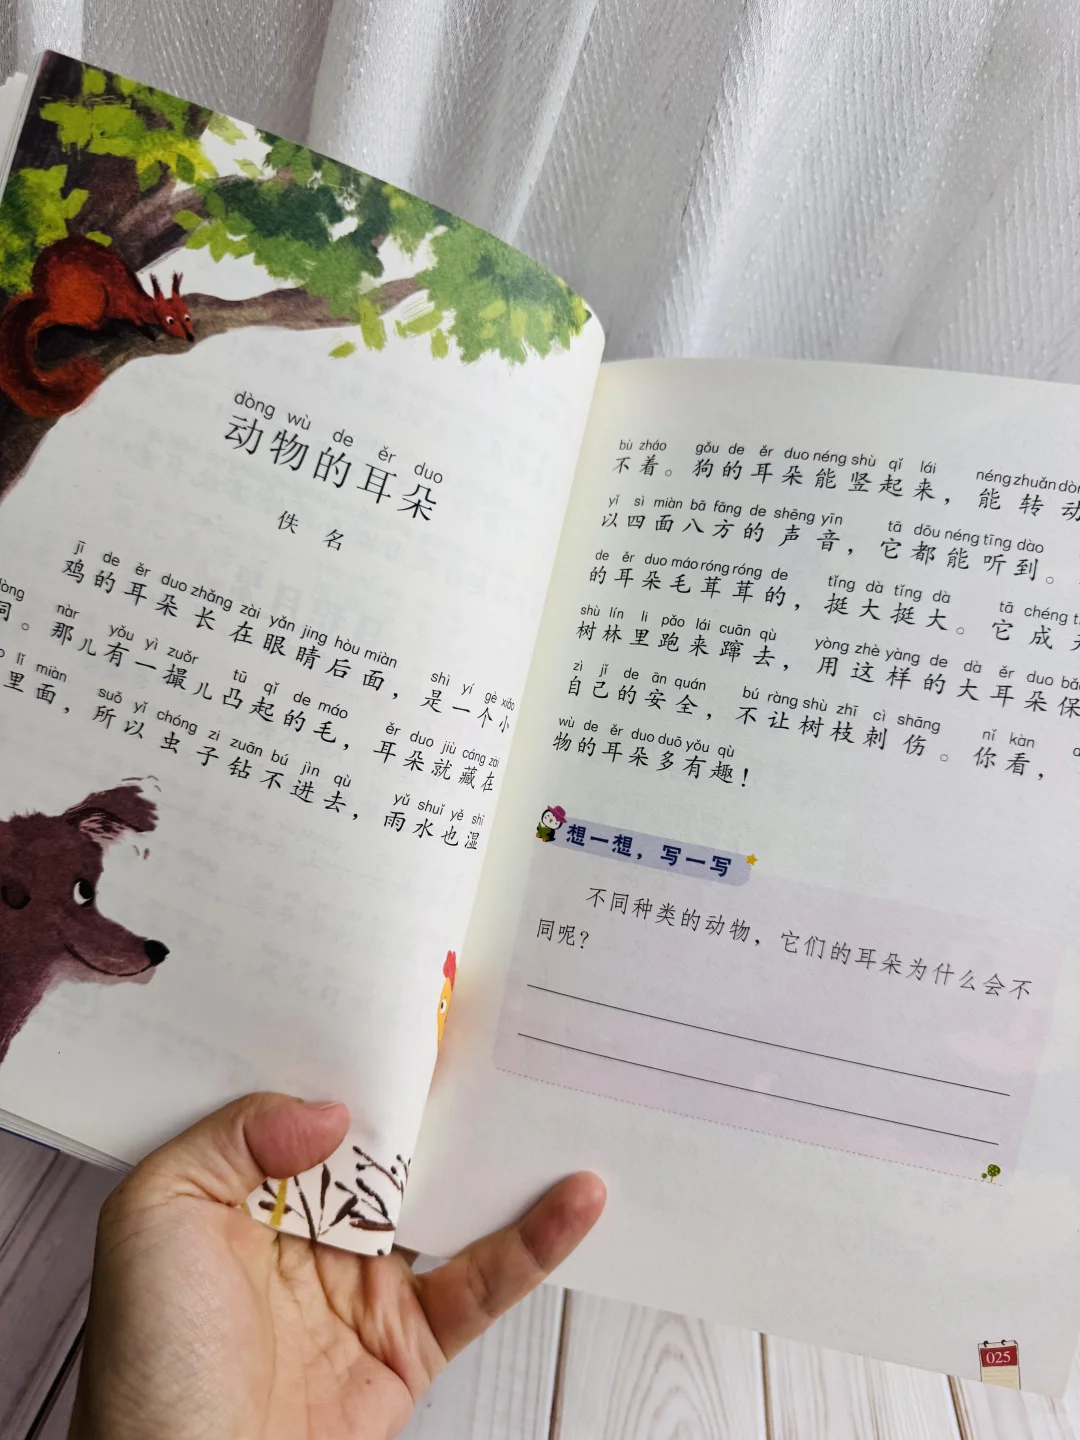 dòng wù de ěr duo
动物的耳朵
佚名
jī de ěr duo zhǎng zài yǎn jing hòu miàn, shì yí gè xiǎo
鸡的耳朵长在眼睛后面，是一个小
dòng nàr yǒu yì zuǒr tū qǐ de máo ěr duo jiù cáng zài
洞。那儿有一撮儿凸起的毛，耳朵就藏在
lǐ miàn suǒ yǐ chóng zi zuān bú jìn qù yǔ shuǐ yě shī
里面，所以虫子钻不进去，雨水也湿
bù zháo gǒu de ěr duo néng shù qǐ lái néng zhuǎn dòng
不着。狗的耳朵能竖起来，能转动
yǐ sì miàn bā fāng de shēng yīn tā dōu néng tīng dào
以四面八方的声音，它都能听到。
de ěr duo máo róng róng de tǐng dà tǐng dà tā chéng
的耳朵毛茸茸的，挺大挺大。它成
shù lín li pǎo lái cuān qù yòng zhè yàng de dà ěr duo bǎo
树林里跑来蹿去，用这样的大耳朵保
zì jǐ de ān quán bú ràng shù zhī cì shāng nǐ kàn
自己的安全，不让树枝刺伤。你看，
wù de ěr duo duō yǒu qù
物的耳朵多有趣！
想一想，写一写
不同种类的动物，它们的耳朵为什么会不
同呢？
025